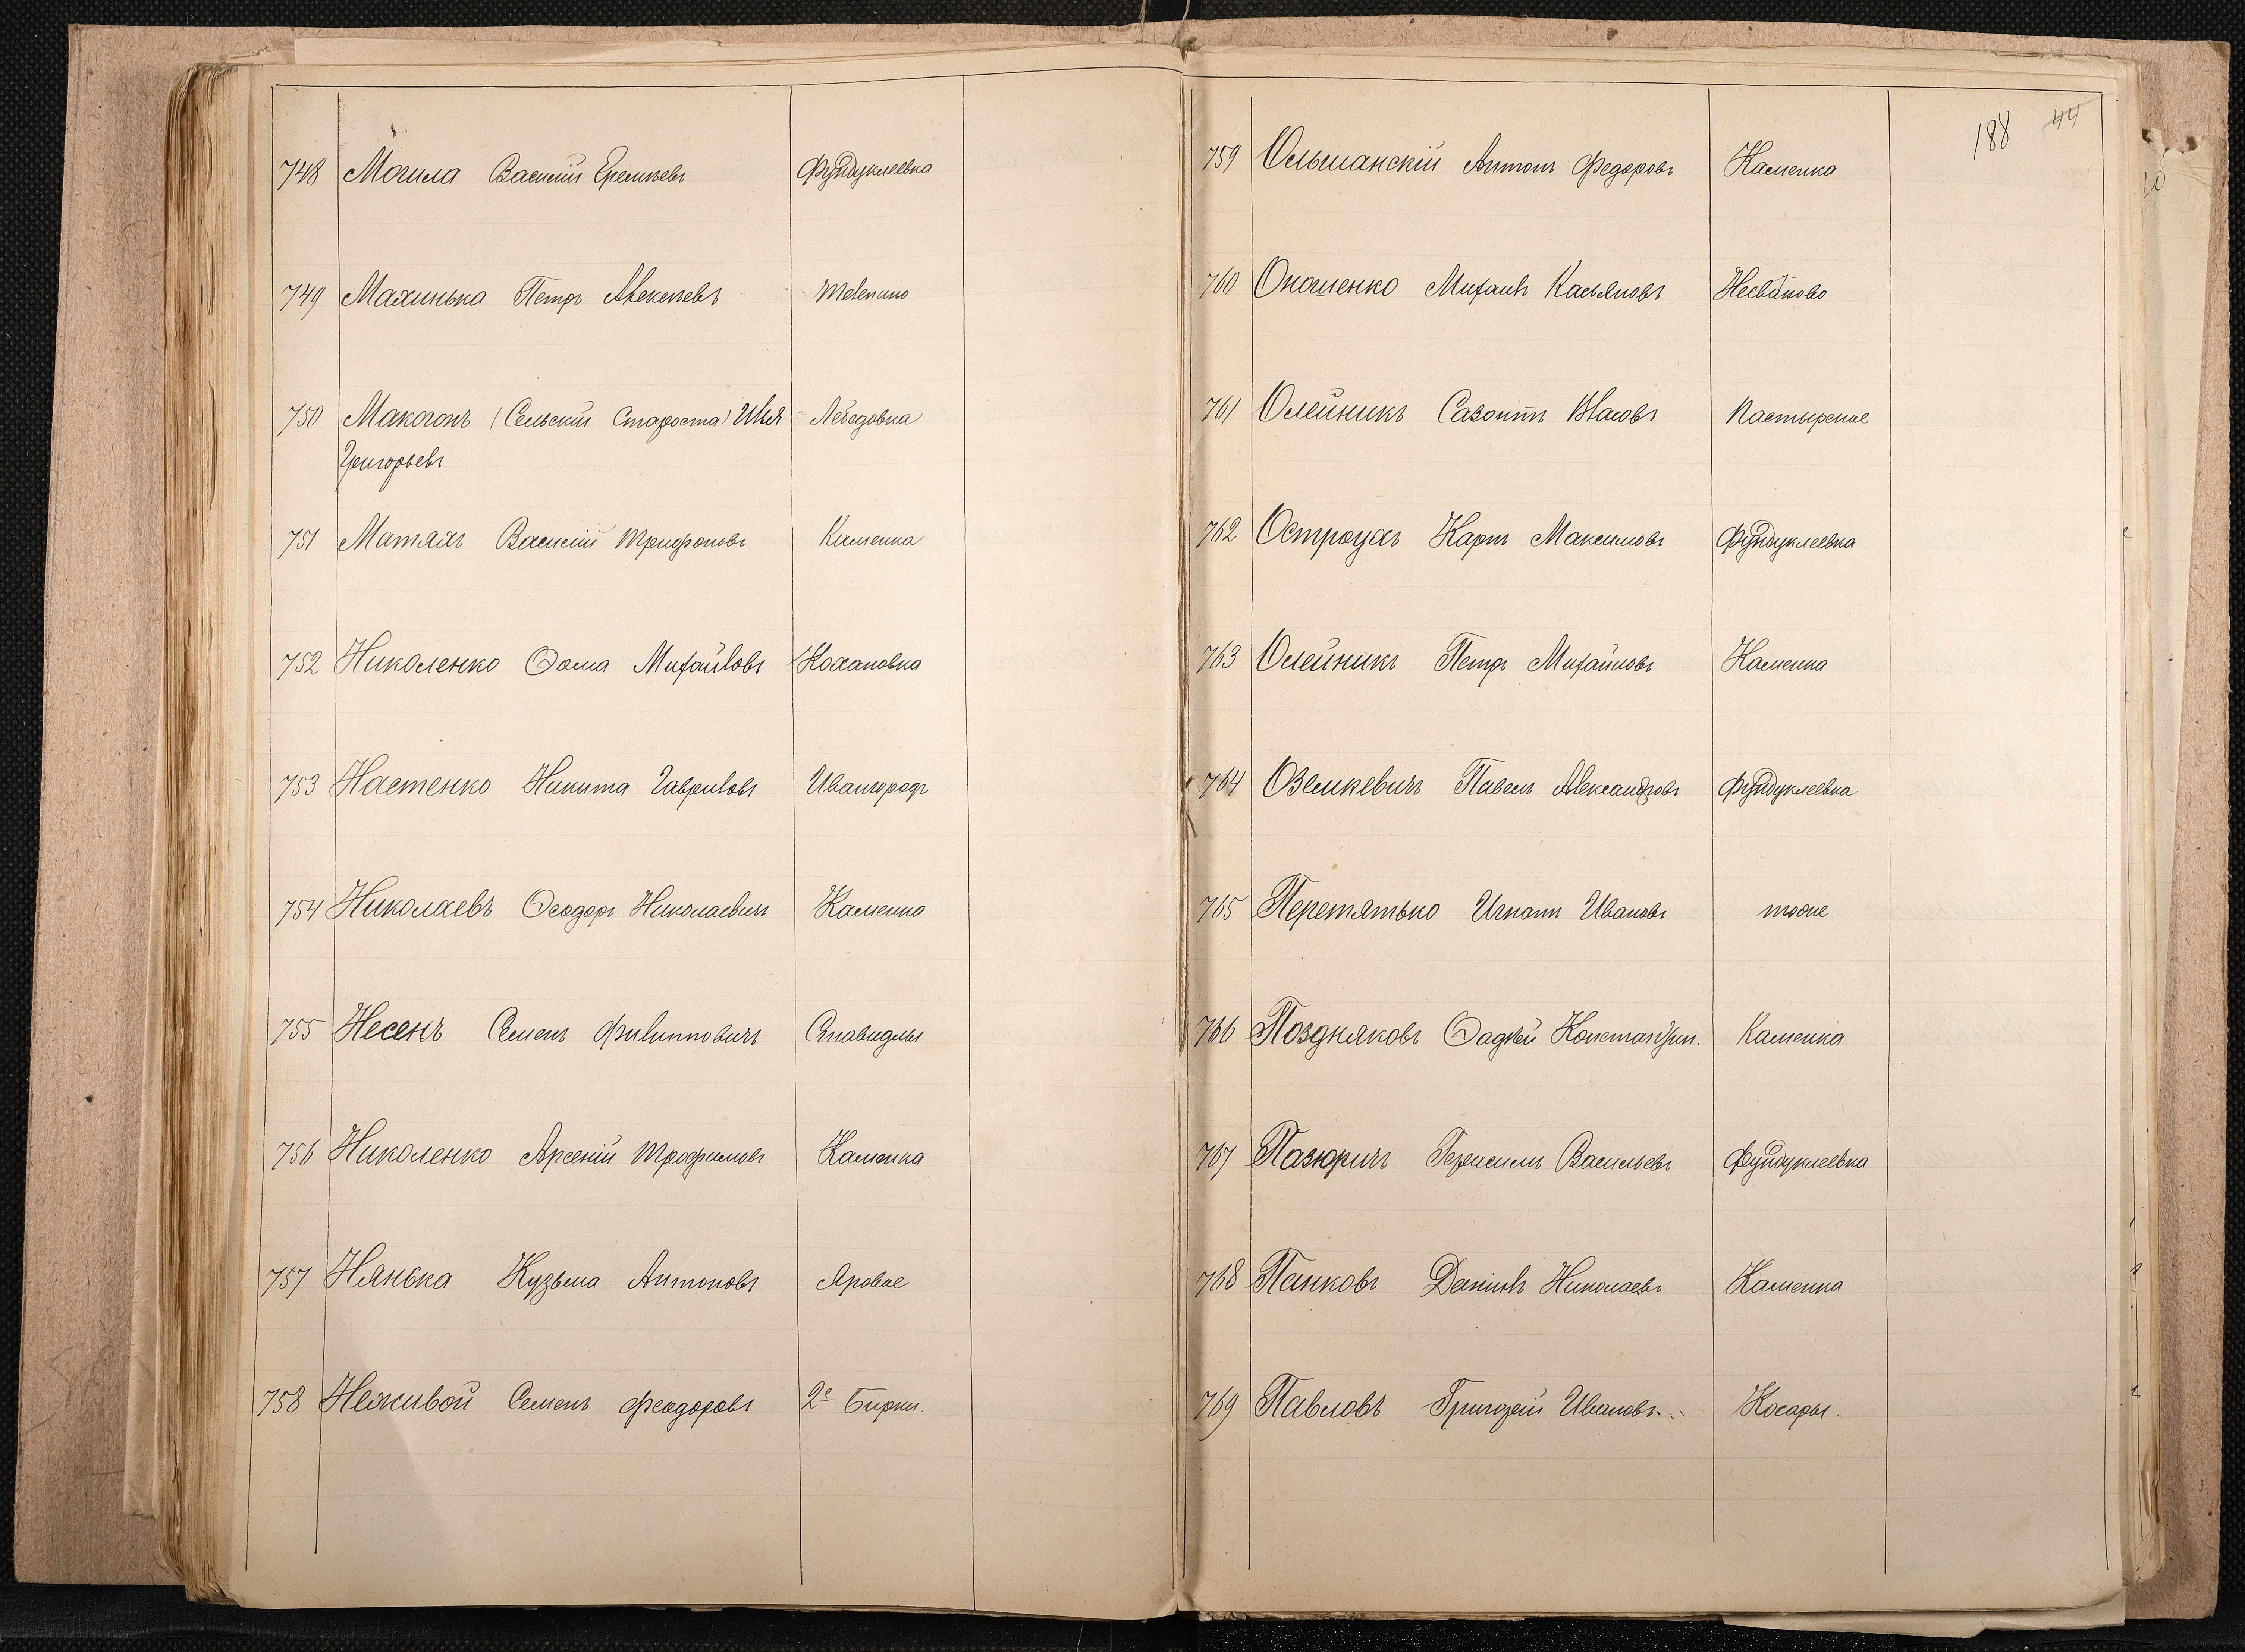 748 Могила Василій Еремѣевъ Фундуклеевка
749 Махинька Петръ Алексѣевъ Телепино
750 Макогонъ (Сельскій Староста) Илья Лебедовка
Григорьевъ
751 Матяхъ Василій Трифоновъ Каменка
752 Николенко Ѳома Михайловъ Кохановка
753 Настенко Никита Гавриловъ Ивангородъ
754 Николаевъ Ѳеодоръ Николаевичъ Каменка
755 Несенъ Семенъ Филипповичъ Ставидлы
756 Николенко Арсеній Трофимовъ Каменка
757 Нянька Кузьма Антоновъ Яровое
758 Неживой Семенъ Феодоровъ 2е Бирки.
188 44
759 Ольшанскій Антонъ Федоровъ Каменка
760 Онашенко Михаилъ Касьяновъ Несватково
761 Олейникъ Сазонтъ Власовъ Пастырское
762 Остроухъ Карпъ Максимовъ Фундуклеевка
763 Олейникъ Петръ Михайловъ Каменка
764 Оземкевичъ Павелъ Александровъ Фундуклеевка
765 Перетятько Игнатъ Ивановъ тоже
766 Поздняковъ Ѳадѣй Константин. Каменка
767 Пазюричъ Герасимъ Васильевъ Фундуклеевка
768 Панковъ Даніилъ Николаевъ Каменка
769 Павловъ Григорій Ивановъ Косары.